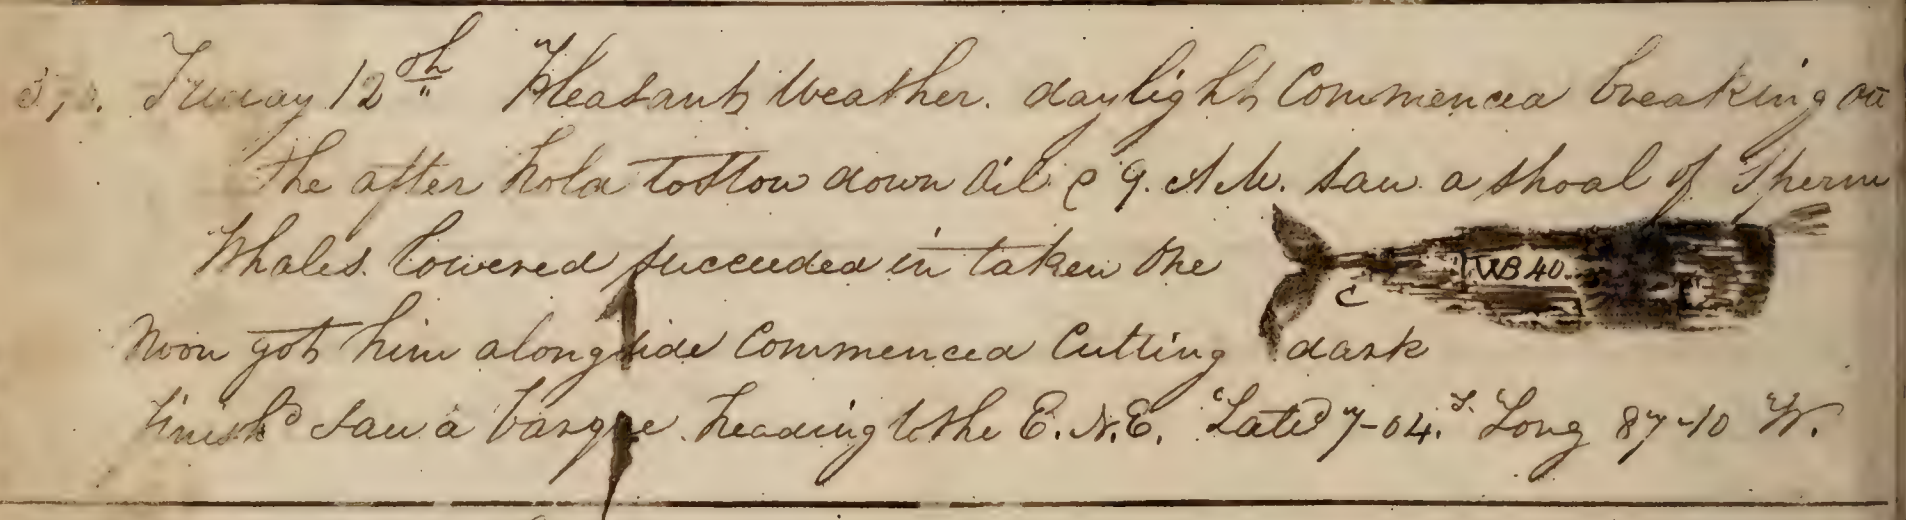 Friday 12th Pleasant Weather. daylight Commenced breaking ou
the after hold to Stow down Oil @ 9. A.M. saw a shoal of Sperm
Whales. lowered succeeded in taken One
WB 40
C
Noon got him alongside Commenced Cutting dark
finishd saw a barque heading to the E.N.E. Latd 7-04. S. Long 87-10 W.